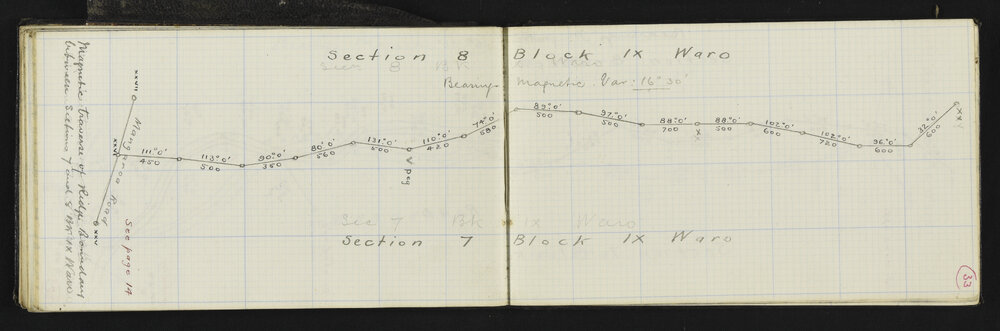 Magnetic traverse of Ridge Boundary
between Sections 7 and 8 Bk IX Waro
Section 8 Block IX Waro
Sec 8 Bk
Bearings Magnetic. Var: 16° 30'
XXVII
Road
XXVI
XXV
See page 14
111°0' 450
113°0' 500
90°0' 350
80°0' 560
131°0' 500
V peg
110°0' 420
74°0' 580
89°0' 500
97°0' 500
88°0' 700
X
88°0' 500
102°0' 600
102°0' 720
96°0' 600
32°0' 600
Sec 7 Bk IX Waro
Section 7 Block IX Waro
33